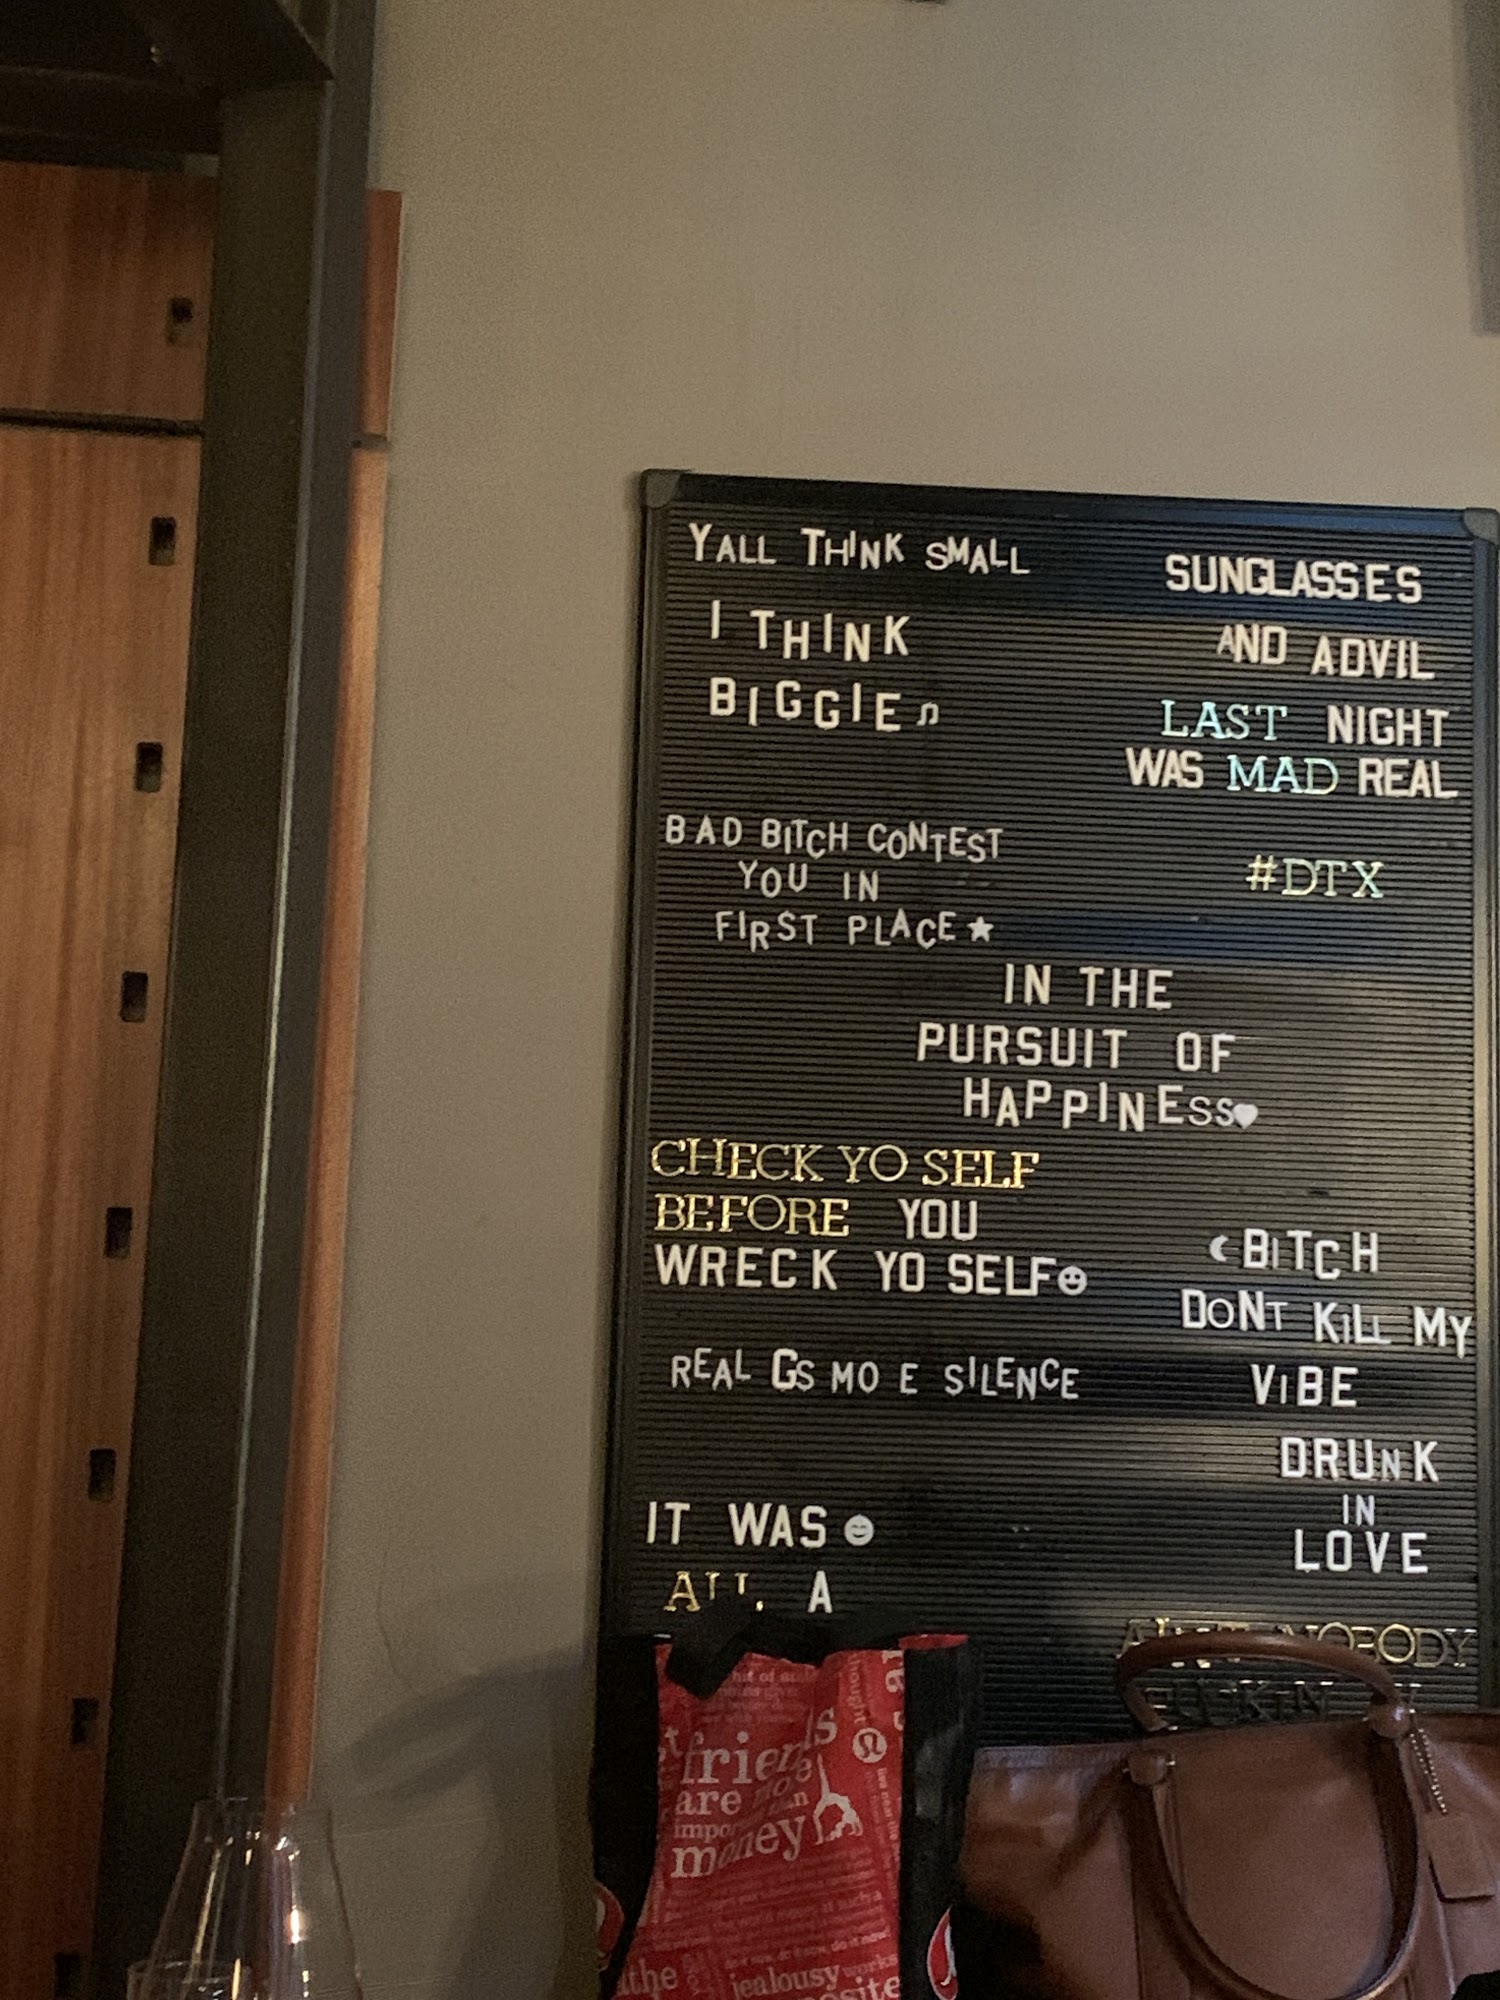 YALL THINK SMALL
I THINK
BIGGIE♫
SUNGLASSES
AND ADVIL
LAST NIGHT
WAS MAD REAL
BAD BITCH CONTEST
YOU IN
FIRST PLACE★
#DTX
IN THE
PURSUIT OF
HAPPINESS♥
CHECK YO SELF
BEFORE YOU
WRECK YO SELF☻
☾BITCH
DONT KILL MY
VIBE
REAL GS MO E SILENCE
DRUNK
IN
LOVE
IT WAS☻
ALL A
AINT NOBODY
friends
are more
than
money
thought
the
jealousy works